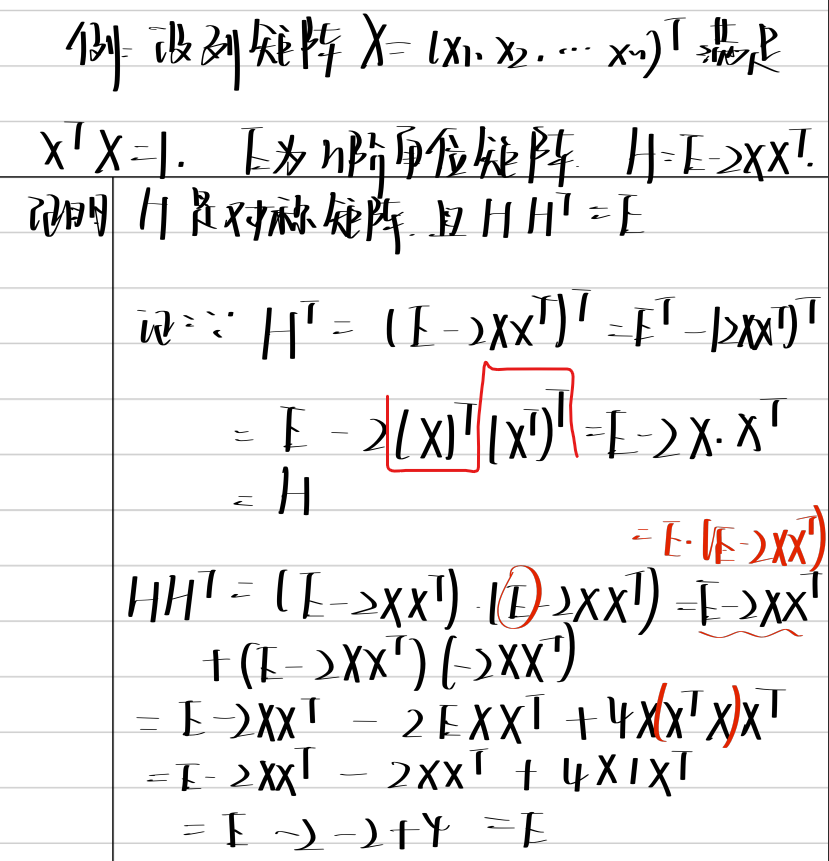 例: 设列矩阵 X=(x₁, x₂. … xₙ)ᵀ 满足
XᵀX=1. E为n阶单位矩阵. H=E-2XXᵀ.
证明 H是对称矩阵.且 HHᵀ=E
证:∵ Hᵀ = (E-2XXᵀ)ᵀ =Eᵀ-(2XXᵀ)ᵀ
= E - 2(X)ᵀ(Xᵀ)ᵀ =E-2X·Xᵀ
= H
=E·(E-2XXᵀ)
HHᵀ = (E-2XXᵀ)·(E-2XXᵀ) =E-2XXᵀ
+(E-2XXᵀ)(-2XXᵀ)
= E-2XXᵀ - 2EXXᵀ + 4X(XᵀX)Xᵀ
=E-2XXᵀ - 2XXᵀ + 4X1Xᵀ
= E -2-2+4 =E